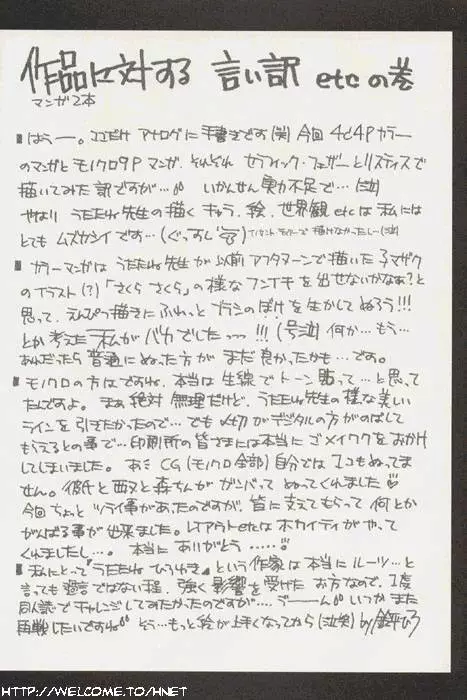 作品に対する 言い訳 etcの巻
マンガ2本
■はうー。ココだけ アナログに手書きです(笑) 今回 4C4Pカラー
のマンガと モノクロ9P マンガ、それぞれ セラフィック・フェザーとリスティスで
描いてみた訳ですが…。。 いかんせん実力不足で…(泣)
やはり うたたね先生の描く キャラ、絵、世界観etcは 私には
とても ムズカシイです…(ぐっすし
で描けなかったしー(泣)
■カラーマンガは うたたね先生が 以前 アフタヌーンで描いた
のイラスト(?)「さくら さくら」の様な フンイキ を出せないかなぁ?と
思って、えんぴつ描きに ふわっと ブラシのぼけを生かして ぬろう!!!
とか考えた 私がバカでしたっっ!!!(号泣) 何か…もう…
あれだったら 普通に ぬった方が まだ 良かったかも…です。
■モノクロの方はですね、本当は 生線で トーン貼って…と思って
たんですよ。 まぁ 絶対 無理だけど、うたたね先生の様な美しい
ラインを引きたかったので…でも〆切がデジタルの方がのばして
もらえるとの事で…印刷所の皆さまには本当に ゴメイワクをおかけ
してしまいました。 あう CG(モノクロ全部)自分では 1コもぬってま
せん。彼氏と 西又と森ちんが ガンバって ぬってくれました♡
今回 ちょっと ツライ事があったのですが、皆に支えてもらって 何とか
がんばる事が出来ました。レイアウトetcは ホカイティが やって
くれましたし…。 本当に ありがとう……!
■私にとって『うたたね ひろゆき』という作家は 本当に ルーツ…と
言っても 過言ではない程、強く 影響を受けた お方なので、1度
同人誌で チャレンジしてみたかったのですが…、うーーん。。いつか また
再戦したいですね。。 どう…もっと絵が上手くなってから(泣笑) by
HTTP://WELCOME.TO/HNET